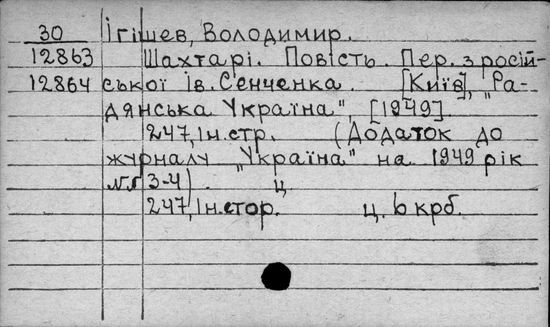 30 Ігішев, Володимир.
12863 Шахтарі. Повість. Пер. з росій-
12864 ської Ів. Сенченка. [Київ], "Ра-
дянська Україна", [1949].
247, 1 н.стр. (Додаток до
журналу "Україна" на 1949 рік
№№ 3-4). ц
247, 1 н.стор. ц. 6 крб.